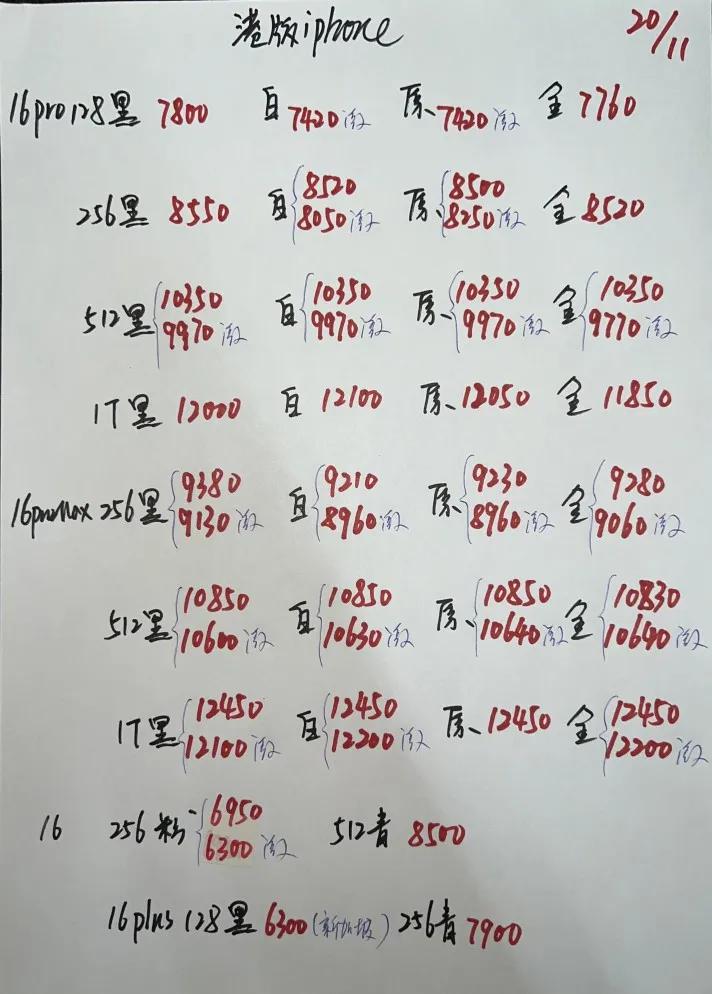 港版iphone 20/11
16pro 128黑 7800 白 7420激 原、7420激 金 7760
256黑 8550 白 8520 原、8500 金 8520
8050激 8250激
512黑 10350 白 10350 原、10350 金 10350
9970激 9970激 9970激 9770激
1T黑 12000 白 12100 原、12050 金 11850
16promax 256黑 9380 白 9210 原、9230 金 9280
9130激 8960激 8960激 9060激
512黑 10850 白 10850 原、10850 金 10830
10600激 10630激 10640激 10640激
1T黑 12450 白 12450 原、12450 金 12450
12100激 12200激 12200激
16 256粉 6950 512青 8500
6300激
16plus 128黑 6300(新加坡) 256青 7900